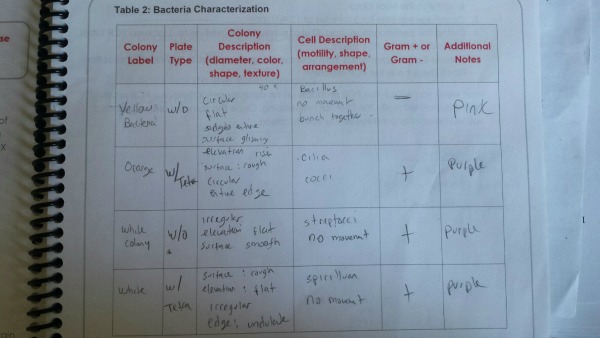 Table 2: Bacteria Characterization
Colony Label
Plate Type
Colony Description (diameter, color, shape, texture)
Cell Description (motility, shape, arrangement)
Gram + or Gram -
Additional Notes
Yellow Bacteria
w/o
circular
flat
edges entire
surface glossy
Bacillus
no movemt
bunch together
—
Pink
Orange
w/ Tetra
elevation
surface: rough
circular
entire edge
-Cilia
cocci
+
Purple
While colony
w/o
irregular
elevation flat
surface smooth
streptocci
no movemt
+
Purple
While
w/ Tetra
surface: rough
elevation: flat
irregular
edge: undulate
spirillum
no movemt
+
Purple